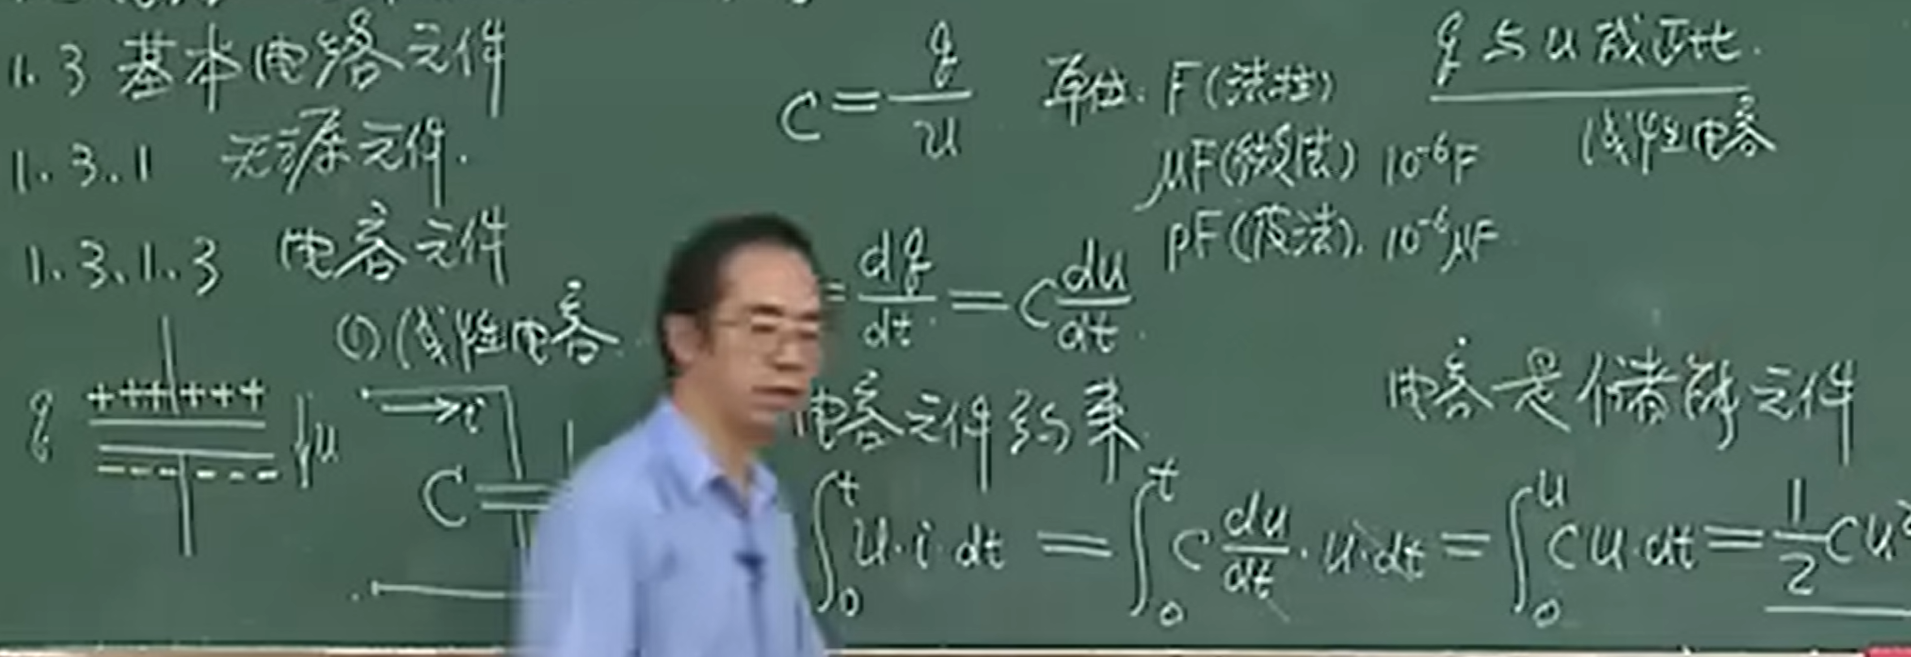 1.3 基本电路元件
1.3.1 无源元件.
1.3.1.3 电容元件
① 线性电容
q
+++++++
u
i
C
C=q/u 单位: F(法拉)
μF(微法) 10⁻⁶F
pF(皮法). 10⁻⁶μF
q与u成正比.
线性电容
=dq/dt=C du/dt.
电容元件约束
电容是储能元件
∫₀ᵗ u·i·dt=∫₀ᵗ C du/dt·u·dt=∫₀ᵘ Cu·dt=1/2 Cu²